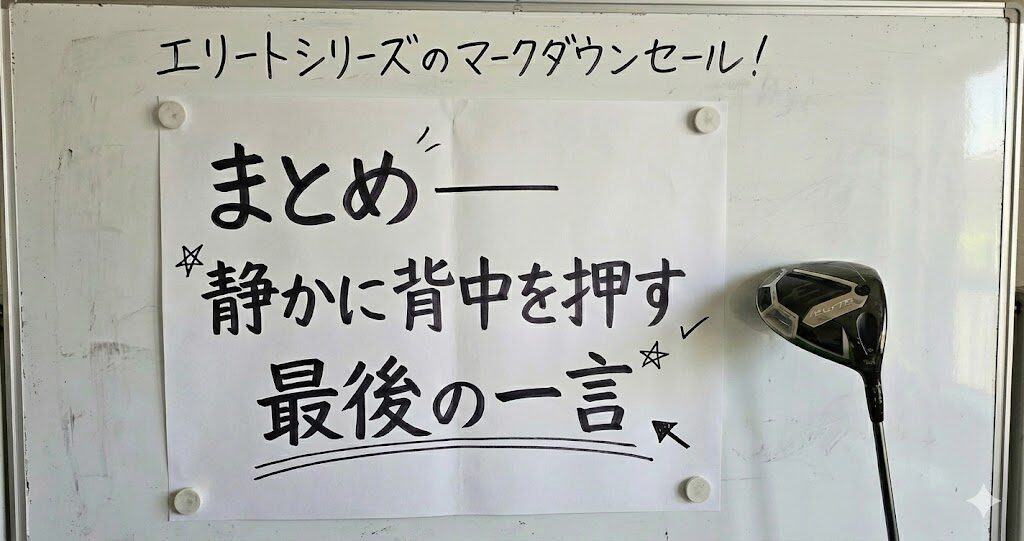 エリートシリーズのマークダウンセール!
まとめ——
☆静かに背中を押す✓
最後の一言☆